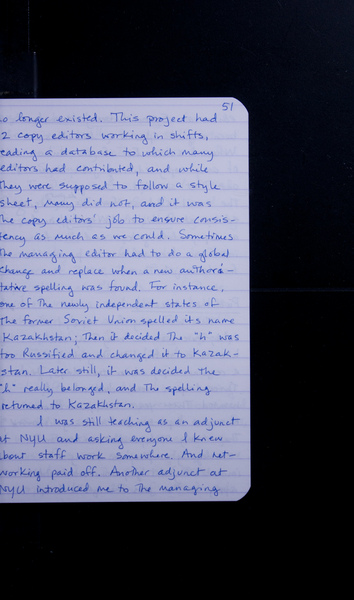 51
no longer existed. This project had
2 copy editors working in shifts,
reading a database to which many
editors had contributed, and while
they were supposed to follow a style
sheet, many did not, and it was
the copy editors' job to ensure consis-
tency as much as we could. Sometimes
the managing editor had to do a global
change and replace when a new authori-
tative spelling was found. For instance,
one of the newly independent states of
the former Soviet Union spelled its name
Kazakhstan; then it decided the "h" was
too Russified and changed it to Kazak-
stan. Later still, it was decided the
"h" really belonged, and the spelling
returned to Kazakhstan.
I was still teaching as an adjunct
at NYU and asking everyone I knew
about staff work somewhere. And net-
working paid off. Another adjunct at
NYU introduced me to the managing